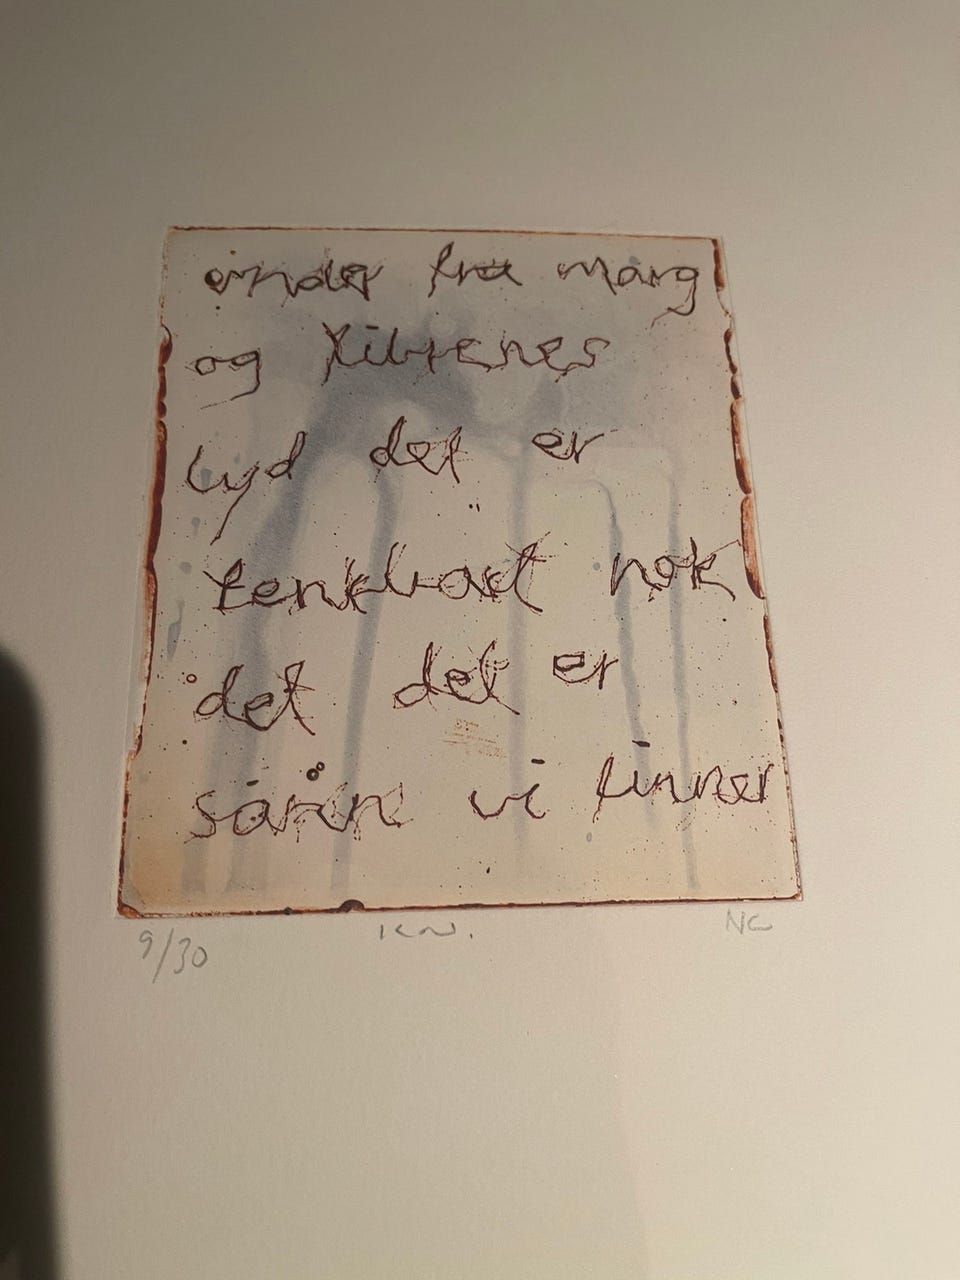 ander fra marg
og fibrenes
lyd det er
tenkbart nok
det det er
sånn vi finner
9/30
K.N.
NC